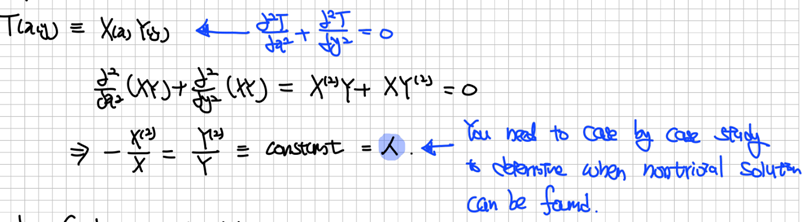 T(x,y) ≡ X(x) Y(y) ← ∂²T/∂x² + ∂²T/∂y² = 0
∂²/∂x² (XY) + ∂²/∂y² (XY) = X⁽²⁾Y + XY⁽²⁾ = 0
⇒ - X⁽²⁾/X = Y⁽²⁾/Y ≡ constant = λ. ← You need to case by case study
to determine when nontrivial solution
can be found.